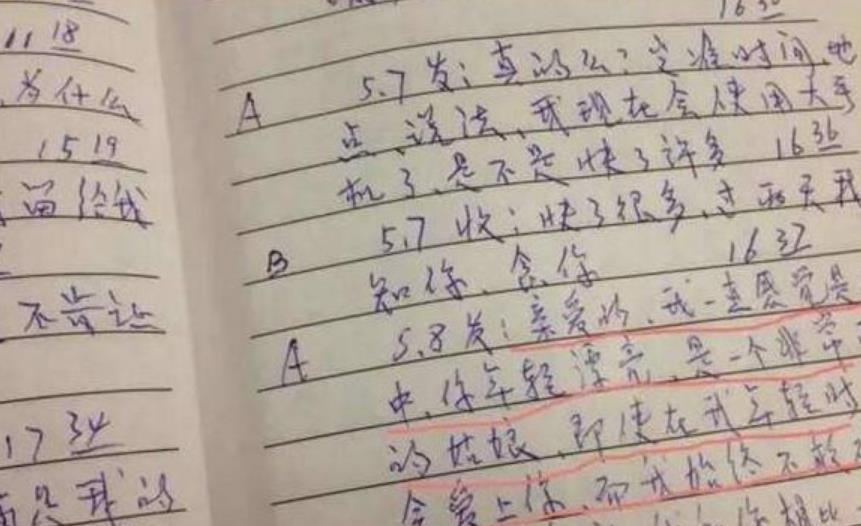 11 18
为什么
15 19
留给我
不肯让
17 34
只我的
16 30
A 5.7发:真的么:定准时间、地
点、说法、我现在会使用大手
机了、是不是快了许多 16 36
B 5.7收:快了很多、过两天我
知你、念你 16 37
A 5.8发:亲爱的、我一直感觉是
中、你年轻漂亮、是一个非常
的姑娘、即使在我年轻时
会爱上你、而我始终不敢
你相比